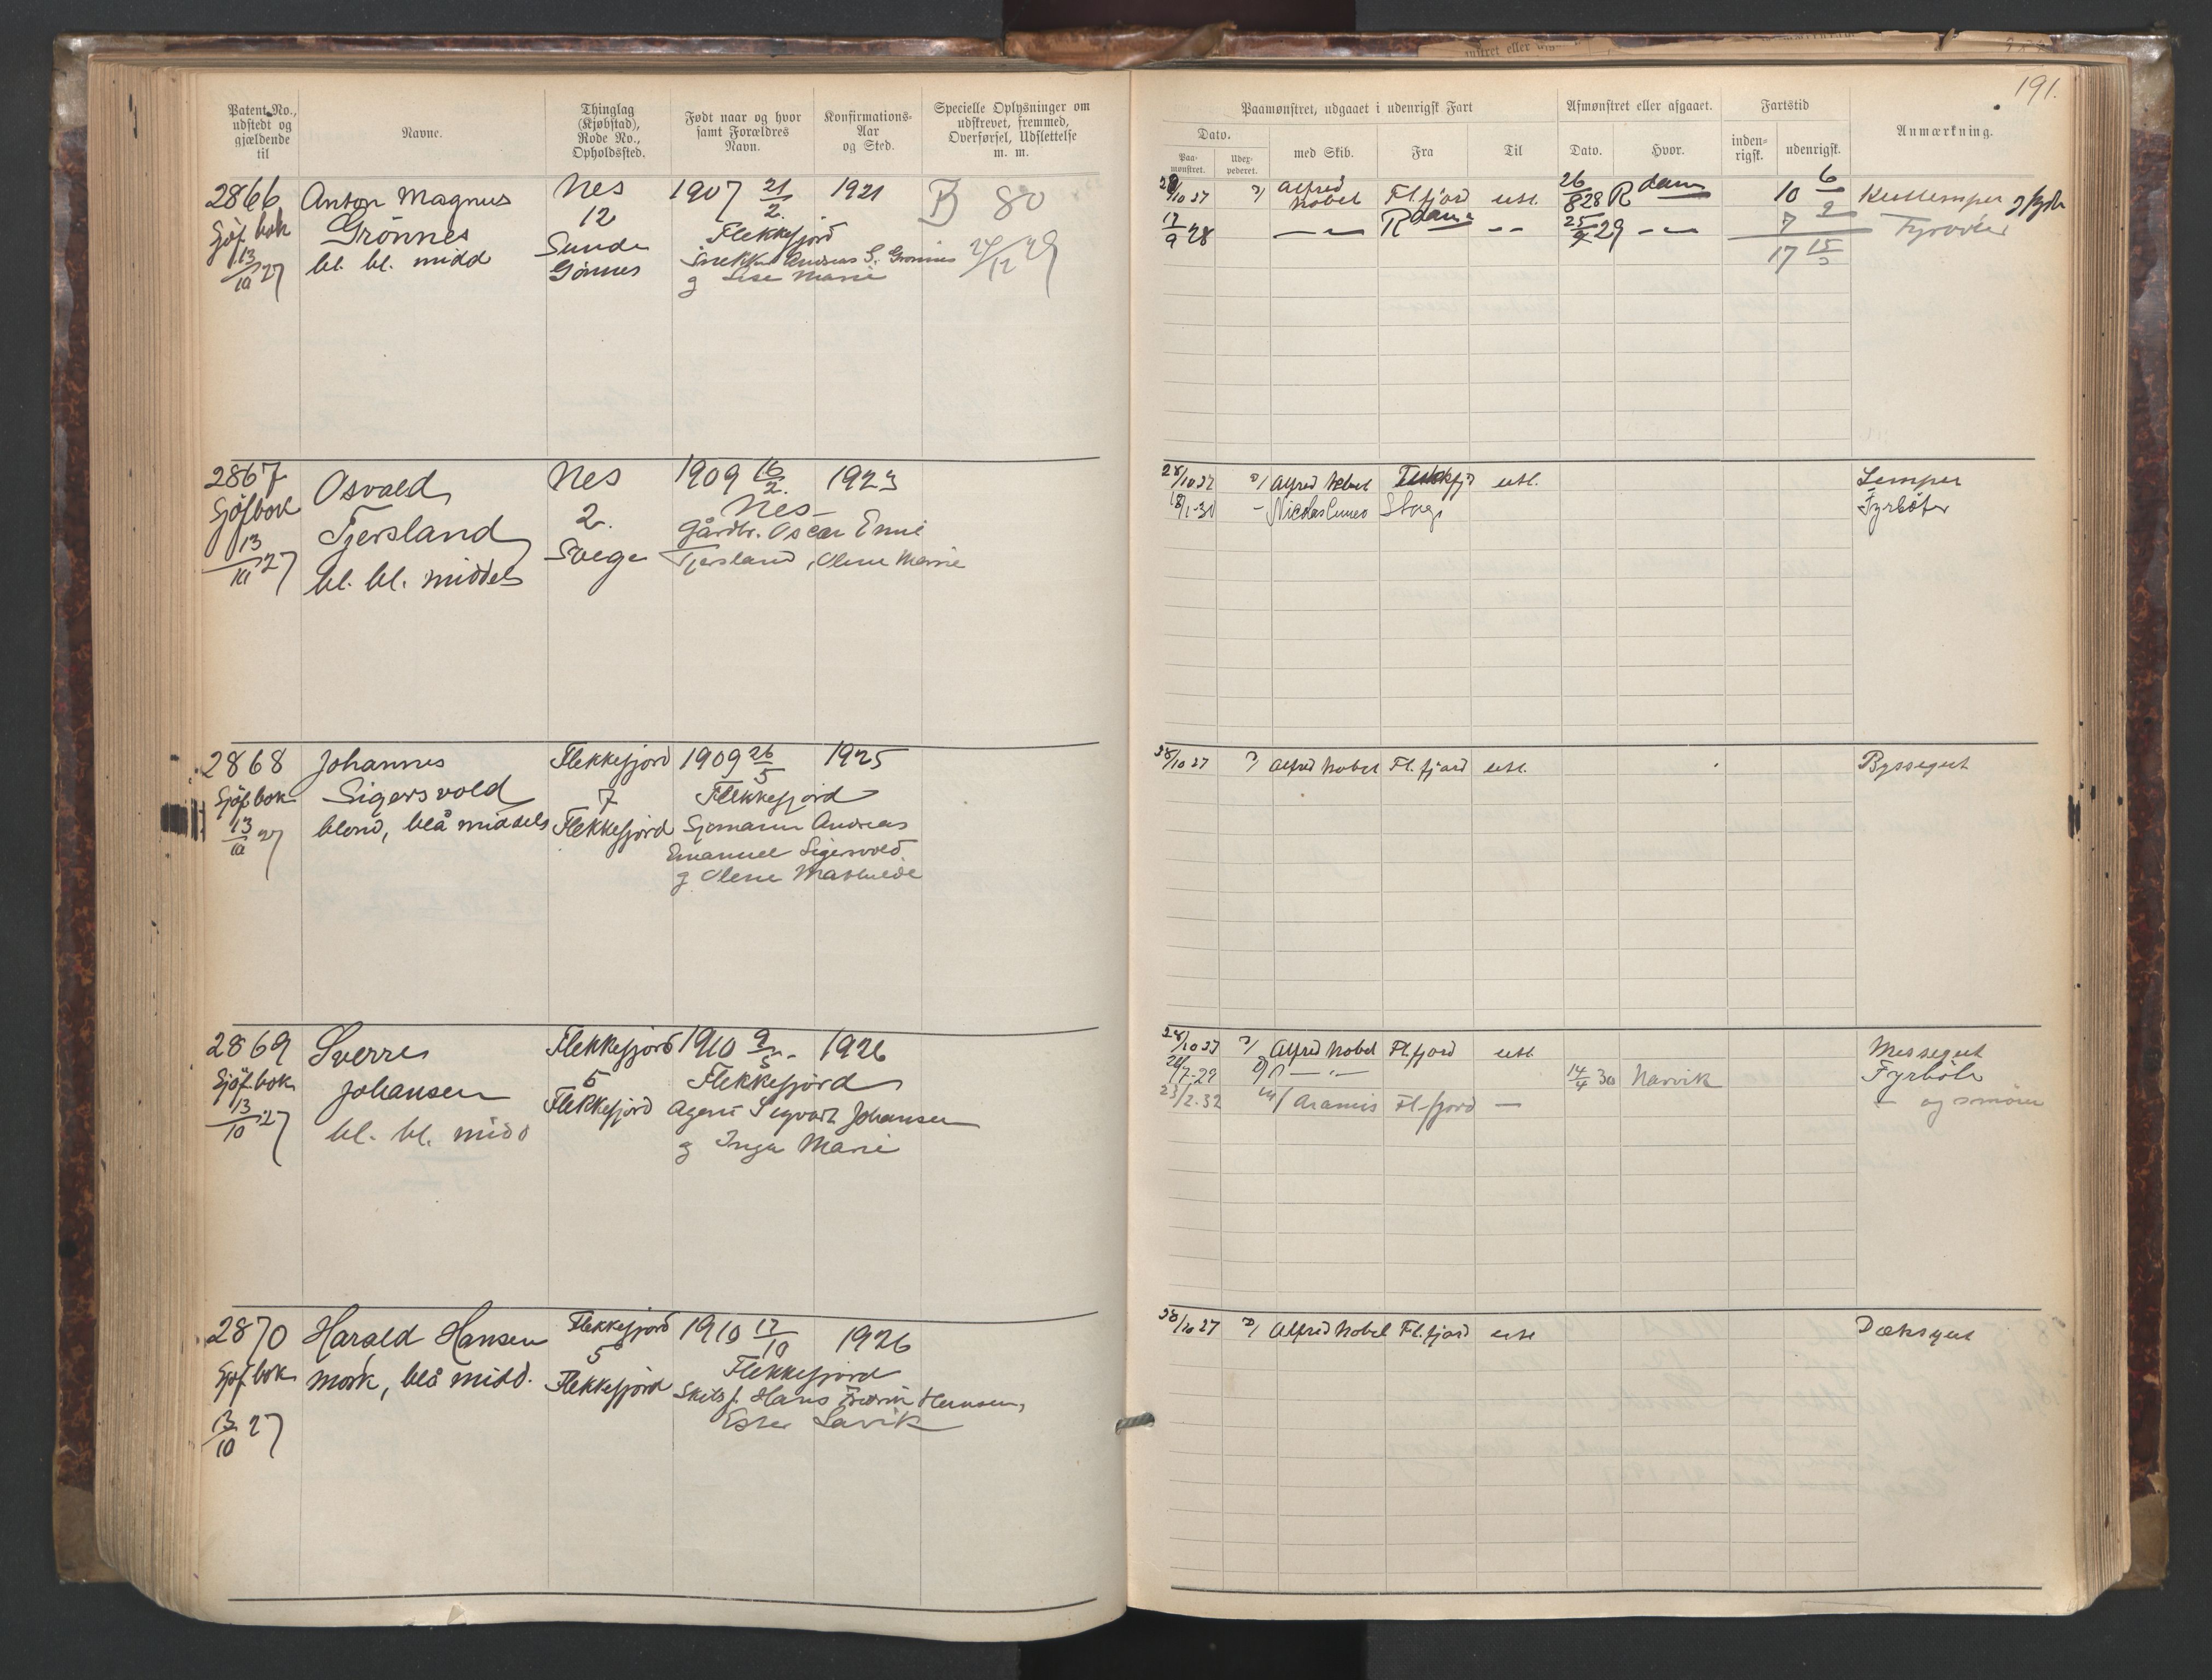 191.
Patent-No., udstedt og gjældende til
Navne.
Thinglag (Kjøbstad), Rode No., Opholdssted.
Født naar og hvor samt Forældres Navn.
Konfirmations-Aar og Sted.
Specielle Oplysninger om udskrevet, fremmed, Overførsel, Udslettelse m. m.
Paamønstret, udgaaet i udenrigsk Fart
Dato.
Paa-mønstret.
Udex-pederet.
med Skib.
Fra
Til
Afmønstret eller afgaaet.
Dato.
Hvor.
Fartstid
inden-rigsk.
udenrigsk.
Anmærkning.
2866
Sjøf.bok
13/10 27
Anton Magnus
Grønnes
bl. bl. midd
Nes
12
Sunde
Gønnes
1907 21/2
Flekkefjord
Snekker Andreas S. Grønnes
g Lise Marie
1921
B 80
10 27 Alfred Nobel Fl.fjord utl. 26/8 28 R dam 10 6
17/9 28 — R dam -- 25/9 29 -- 7 9
17 15
Fyrbøter
2867
Sjøfbok
13/10 27
Osvald
Tjersland
bl. bl. middels
Nes
2.
Svege
1909 16/2
Nes
Gårdbr. Oscar Emil
Tjersland, Olene Marie
1923
28/10 27 Alfred Nobel Flekkefj utl. Lemper
18/1-30 - Fyrbøter
2868
Sjøf.bok
13/10 27
Johannes
Sigersvold
blond, blå middels
Flekkefjord
7
Flekkefjord
1909 26/5
Flekkefjord
Sjømann Andreas
Emanuel Sigersvold
g Olene Mathilde
1925
28/10 27 Alfred Nobel Fl.fjord utl. Byssegut
2869
Sjøf.bok
13/10 27
Sverre
Johansen
bl. bl. midd
Flekkefjord
5
Flekkefjord
1910 9/5
Flekkefjord
Agent Sigvart Johansen
g Inga Marie
1926
28/10 27 Alfred Nobel Fl.fjord utl. Messegut
7-29 — 14/4 30 Narvik Fyrbøter
23/2-32 Aramis Fl.fjord — - og smører
2870
Sjøf.bok
13/10 27
Harald Hansen
mørk, blå midd.
Flekkefjord
5
Flekkefjord
1910 17/10
Flekkefjord
Hans Hansen,
Savik
1926
28/10 27 Alfred Nobel Fl.fjord utl Dæksgut